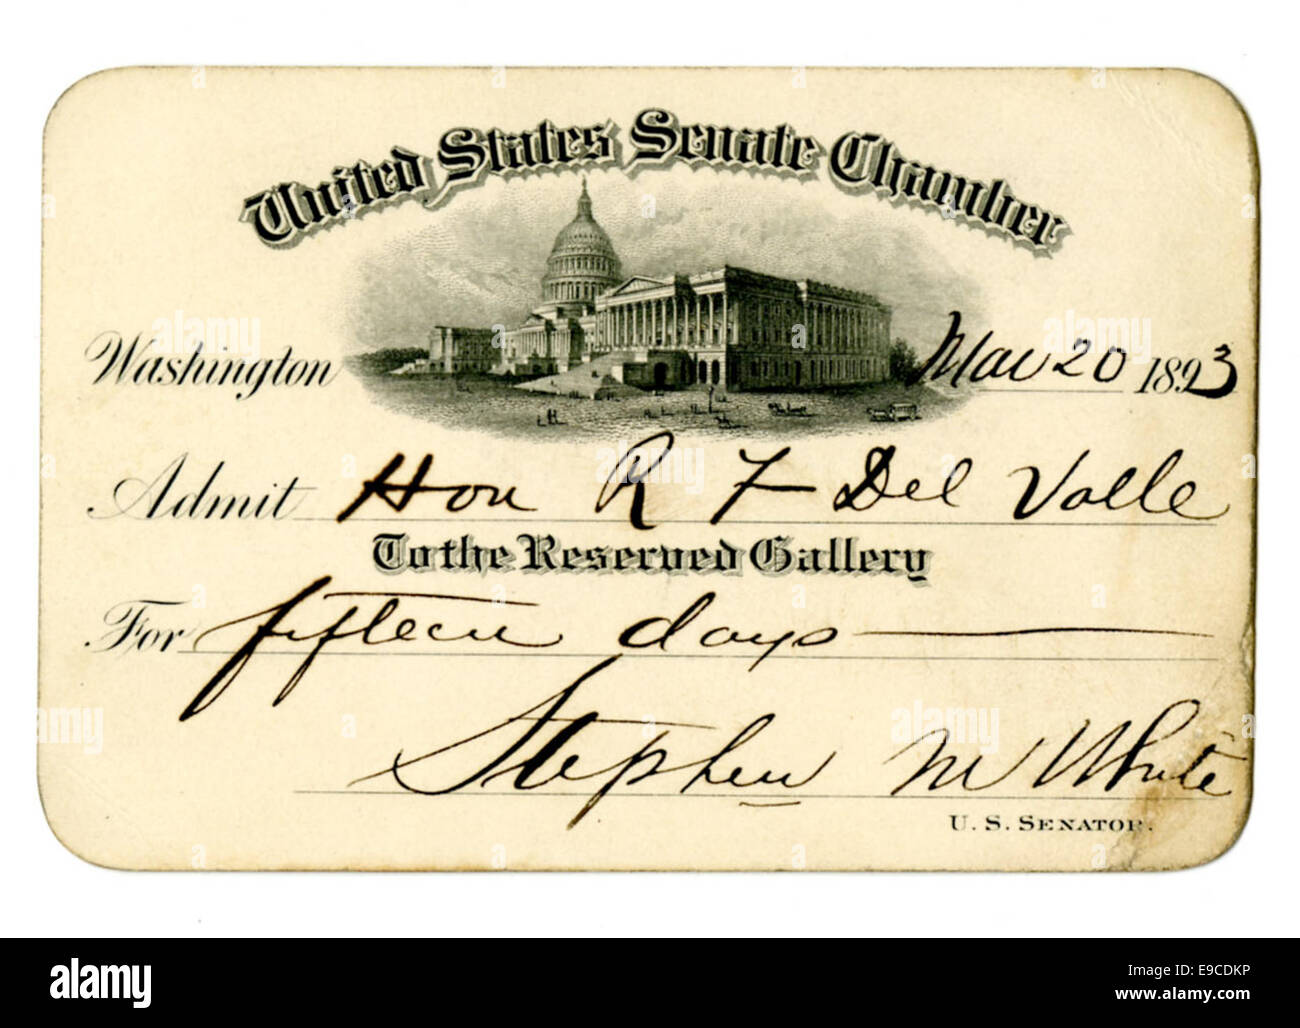 United States Senate Chamber
Washington Mar 20 1893
Admit Hon R F Del Valle
To the Reserved Gallery
For fifteen days
Stephen M White
U. S. SENATOR.
alamy
Image ID: E9CDKP
www.alamy.com